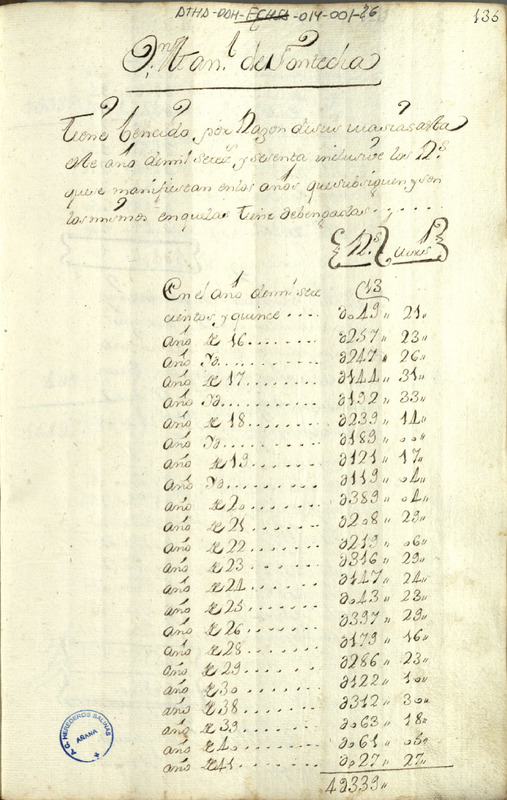 ATHA-DDH-ECHA-014-001-26
136
D.n Man.l de Fontecha
tiene bencido, por Razon de sus masias asta
este año de mil setez.s y sesenta inclusive los R.s
que se manifiestan en los años que subsiguen y son
los mismos en que las tiene debengadas . . . . . .
R.s mrs
En el año de mil sete
cientos y quince . . . . 0o49 " 21"
año de 16 . . . . . . . 0257 " 23"
año Yd. . . . . . . . . 0247 " 26"
año de 17 . . . . . . . 0144 " 31"
año Yd. . . . . . . . . 0192 " 33"
año de 18 . . . . . . . 0239 " 14"
año Yd. . . . . . . . . 0189 " oo"
año de 19 . . . . . . . 0121 " 17"
año Yd. . . . . . . . . 0119 " o4"
año de 2o . . . . . . . 0389 " o4"
año de 21 . . . . . . . 02o8 " 29"
año de 22 . . . . . . . 0219 " o6"
año de 23 . . . . . . . 0316 " 29"
año de 24 . . . . . . . 0147 " 24"
año de 25 . . . . . . . 0o43 " 28"
año de 26 . . . . . . . 0397 " 29"
año de 28 . . . . . . . 0179 " 16"
año de 29 . . . . . . . 0286 " 23"
año de 3o . . . . . . . 0122 " 1o"
año de 38 . . . . . . . 0312 " 3o"
año de 39 . . . . . . . 0o63 " 18"
año de 4o . . . . . . . 0o61 " o5"
año de 41 . . . . . . . 0o27 " 27"
4@339"
T.G. HEREDEROS SALINAS
AÑANA